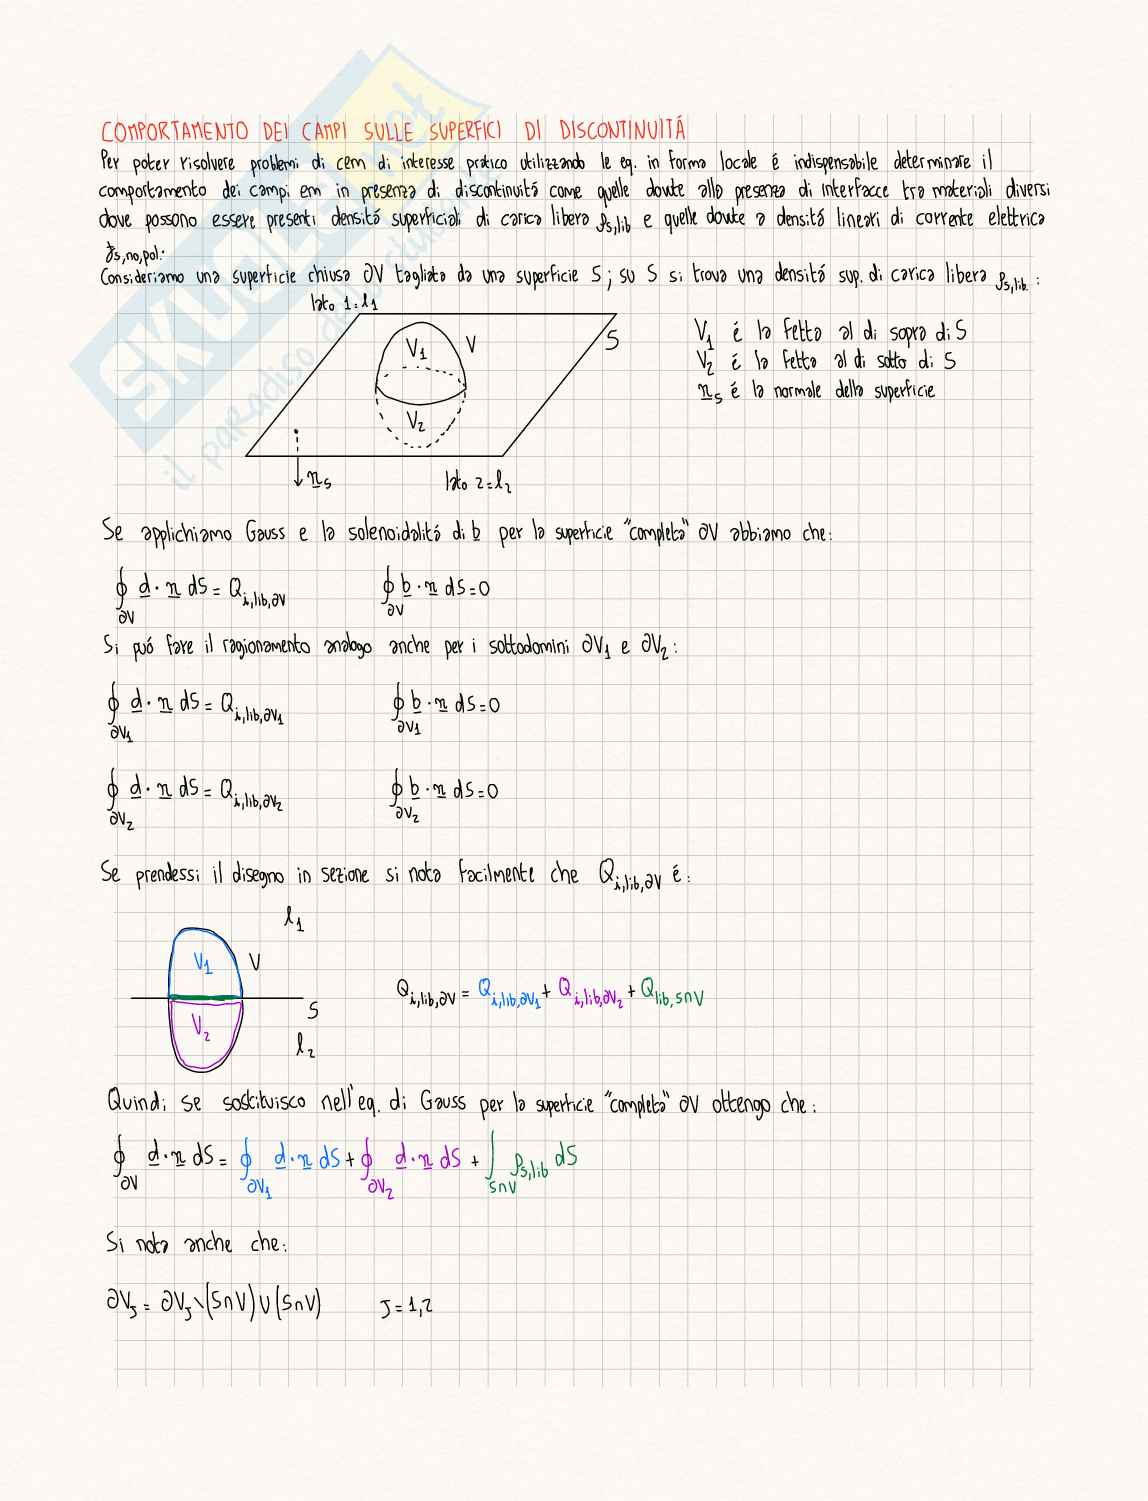 COMPORTAMENTO DEI CAMPI SULLE SUPERFICI DI DISCONTINUITÁ
Per poter risolvere problemi di cem di interesse pratico utilizzando le eq. in forma locale é indispensabile determinare il
comportamento dei campi em in presenza di discontinuitá come quelle dovute alla presenza di interfacce tra materiali diversi
dove possono essere presenti densitá superficiali di carica libera ρs,lib e quelle dovute a densitá lineari di corrente elettrica
Js,no,pol.
Consideriamo una superficie chiusa ∂V tagliata da una superficie S; su S si trova una densitá sup. di carica libera ρs,lib :
lato 1=l1
V1 V S
V2
ns
lato 2=l2
V1 é la fetta al di sopra di S
V2 é la fetta al di sotto di S
ns é la normale della superficie
Se applichiamo Gauss e la solenoidalitá di b per la superficie "completa" ∂V abbiamo che:
∮∂V d · n dS = Qi,lib,∂V ∮∂V b · n dS=0
Si puó fare il ragionamento analogo anche per i sottodomini ∂V1 e ∂V2:
∮∂V1 d · n dS = Qi,lib,∂V1 ∮∂V1 b · n dS=0
∮∂V2 d · n dS = Qi,lib,∂V2 ∮∂V2 b · n dS=0
Se prendessi il disegno in sezione si nota facilmente che Qi,lib,∂V é:
l1
V1 V
S
V2
l2
Qi,lib,∂V = Qi,lib,∂V1 + Qi,lib,∂V2 + Qlib,S∩V
Quindi se sostituisco nell'eq. di Gauss per la superficie "completa" ∂V ottengo che:
∮∂V d · n dS = ∮∂V1 d · n dS + ∮∂V2 d · n dS + ∫S∩V ρs,lib dS
Si nota anche che:
∂VJ = ∂VJ \ (S∩V) ∪ (S∩V) J=1,2
SKUOLA.net
il paradiso dello studente